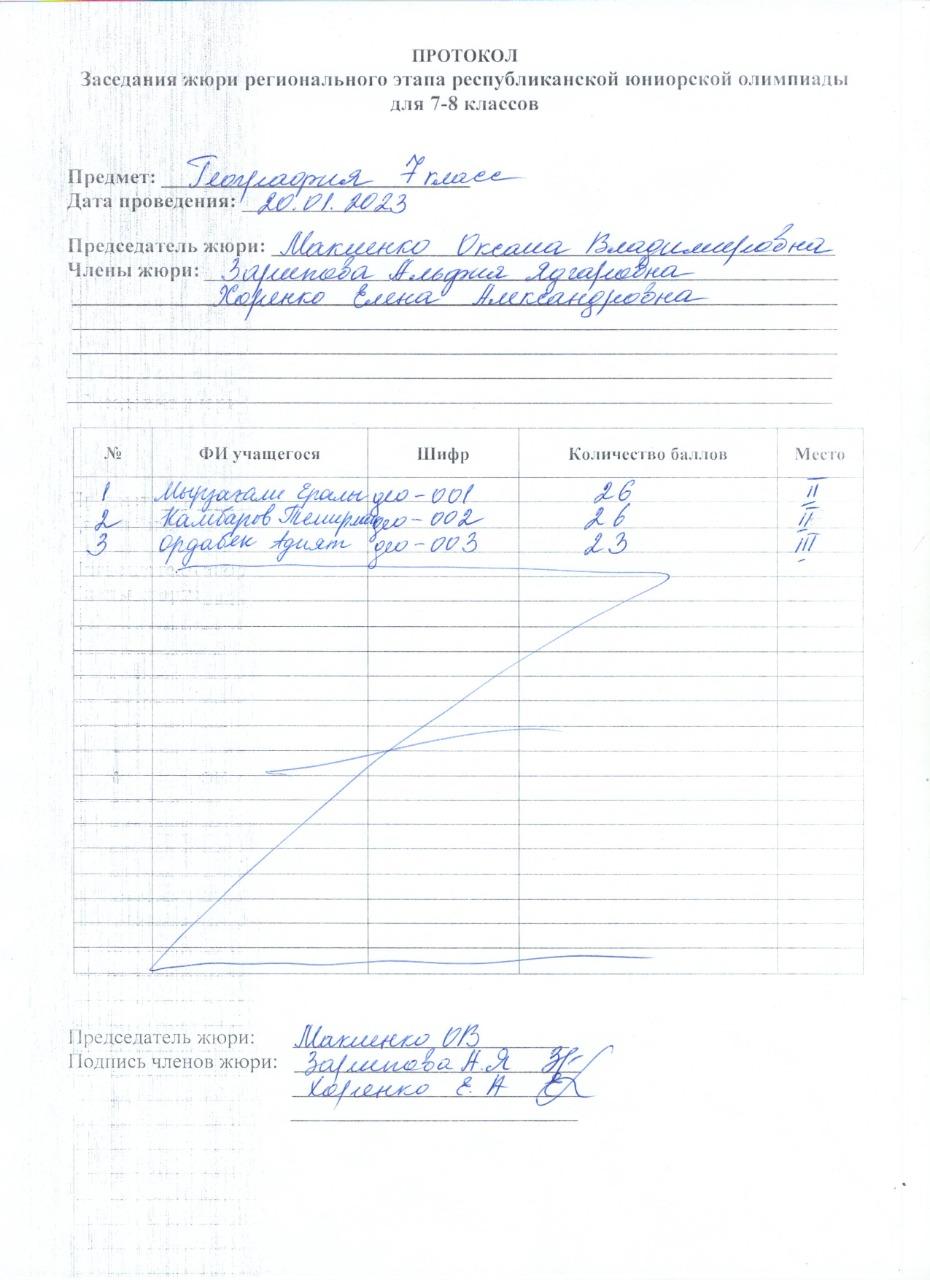 ПРОТОКОЛ
Заседания жюри регионального этапа республиканской юниорской олимпиады
для 7-8 классов
Предмет: География 7 класс
Дата проведения: 20.01.2023
Председатель жюри: Макиенко Оксана Владимировна
Члены жюри: Зарипова Альфия Ядгаровна
Хоренко Елена Александровна
№ ФИ учащегося Шифр Количество баллов Место
1 Мырзахали Ералы geo-001 26 II
2 Камбаров geo-002 26 II
3 Ордабек Адият geo-003 23 III
Председатель жюри: Макиенко ОВ
Подпись членов жюри: Зарипова А.Я
Хоренко Е. А